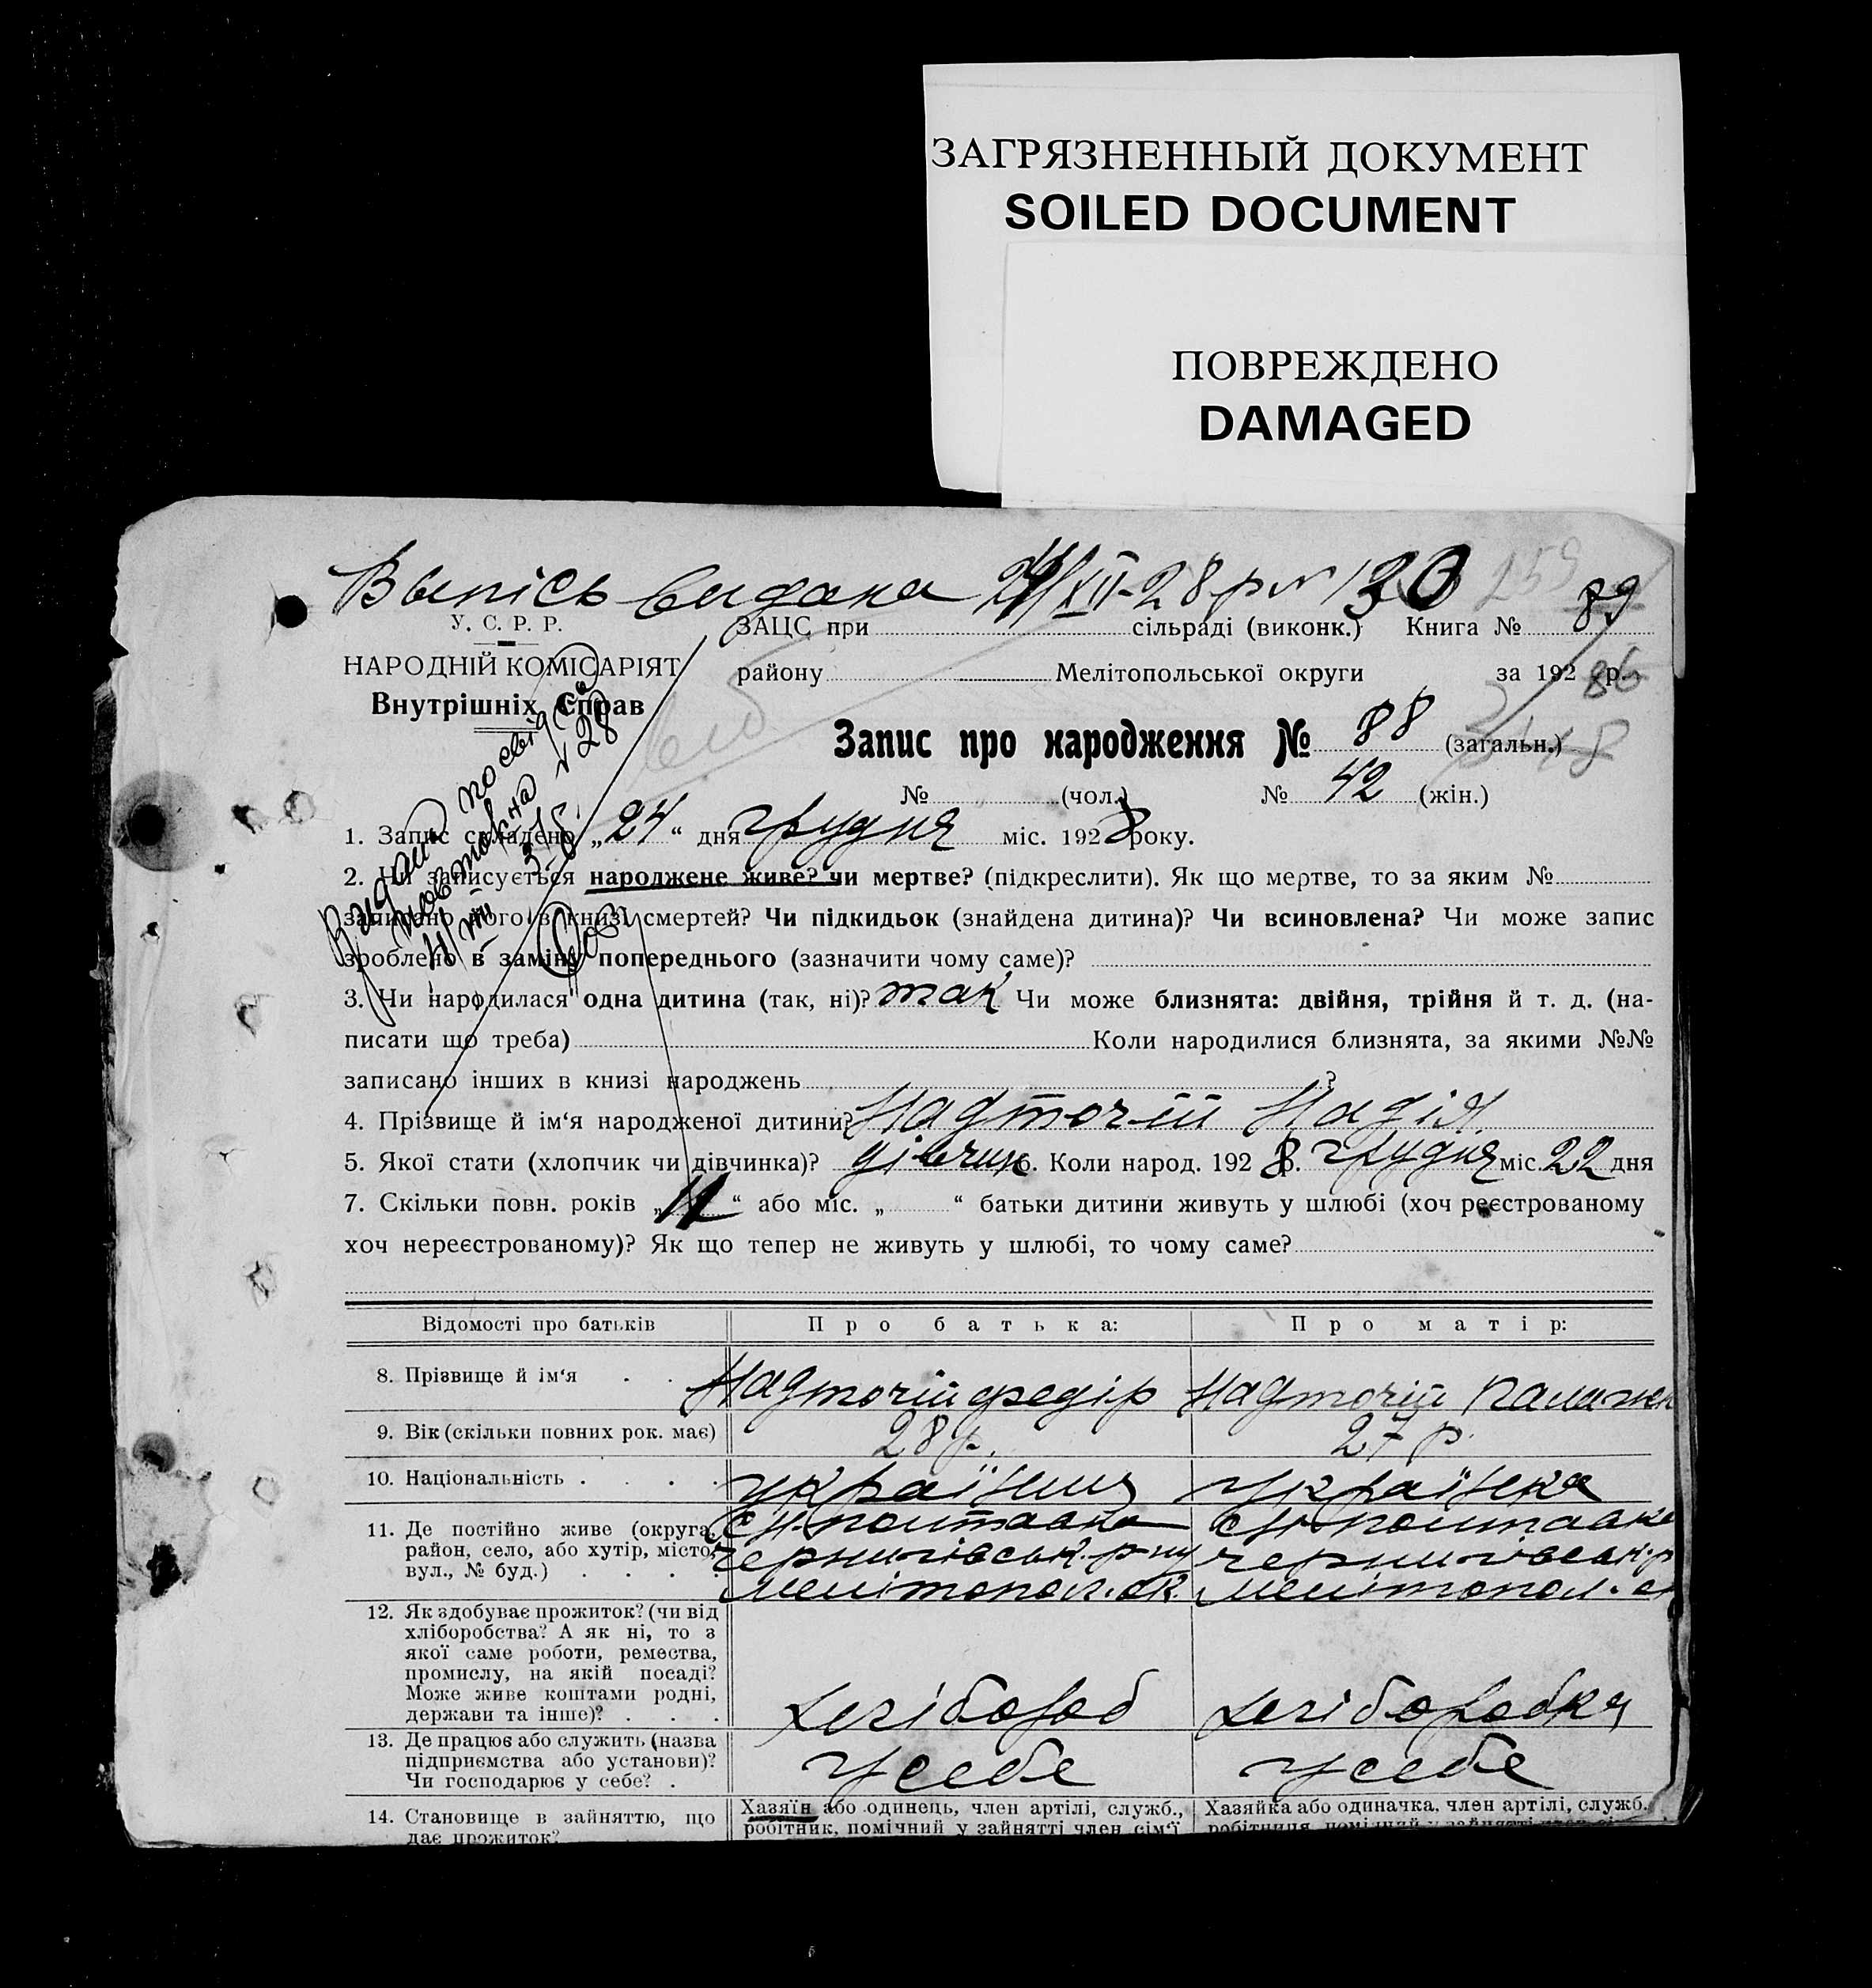 ЗАГРЯЗНЕННЫЙ ДОКУМЕНТ
SOILED DOCUMENT
ПОВРЕЖДЕНО
DAMAGED
Выпісь видана 24/XII-28 р № 130
89
У. С. Р. Р.
НАРОДНІЙ КОМІСАРІЯТ
Внутрішніх Справ
ЗАЦС при сільраді (виконк.) Книга №
району Мелітопольської округи за 192 р.
86
Запис про народження № 88 (загальн.)
№ (чол.) № 42 (жін.)
1. Запис складено „24“ дня грудня міс. 1928 року.
2. Чи записується народжене живе? чи мертве? (підкреслити). Як що мертве, то за яким №
записано його в книзі смертей? Чи підкидьок (знайдена дитина)? Чи всиновлена? Чи може запис
зроблено в заміну попереднього (зазначити чому саме)?
3. Чи народилася одна дитина (так, ні)? так Чи може близнята: двійня, трійня й т. д. (на-
писати що треба) Коли народилися близнята, за якими №№
записано інших в книзі народжень ?
4. Прізвище й ім‘я народженої дитини? Надточій Надія
5. Якої стати (хлопчик чи дівчинка)? дівчин 6. Коли народ. 1928 р. грудня міс. 22 дня
7. Скільки повн. років „11“ або міс. „ “ батьки дитини живуть у шлюбі (хоч реєстрованому
хоч нереєстрованому)? Як що тепер не живуть у шлюбі, то чому саме?
Відомості про батьків Про батька: Про матір:
8. Прізвище й ім‘я . . Надточій Федір Надточій Палажк
9. Вік (скільки повних рок. має) 28 р. 27 р
10. Національність . . . . українец українка
11. Де постійно живе (округа,
район, село, або хутір, місто,
вул., № буд.) . . . .
с. Н. Полтавка
Чернигівськ. р-ну
Мелітопол. ок.
с. Н. Полтавка
Чернигівськ. р
Мелітопол. о
12. Як здобуває прожиток? (чи від
хліборобства? А як ні, то з
якої саме роботи, ремества,
промислу, на якій посаді?
Може живе коштами родні,
держави та інше)? . . .
Хлібороб Хліборобка
13. Де працює або служить (назва
підприємства або установи)?
Чи господарює у себе? .
У себе У себе
14. Становище в зайняттю, що
дає прожиток?
Хазяїн або одинець, член артілі, служб.,
робітник, помічний у зайнятті член сім‘ї
Хазяйка або одиначка, член артілі, служб.